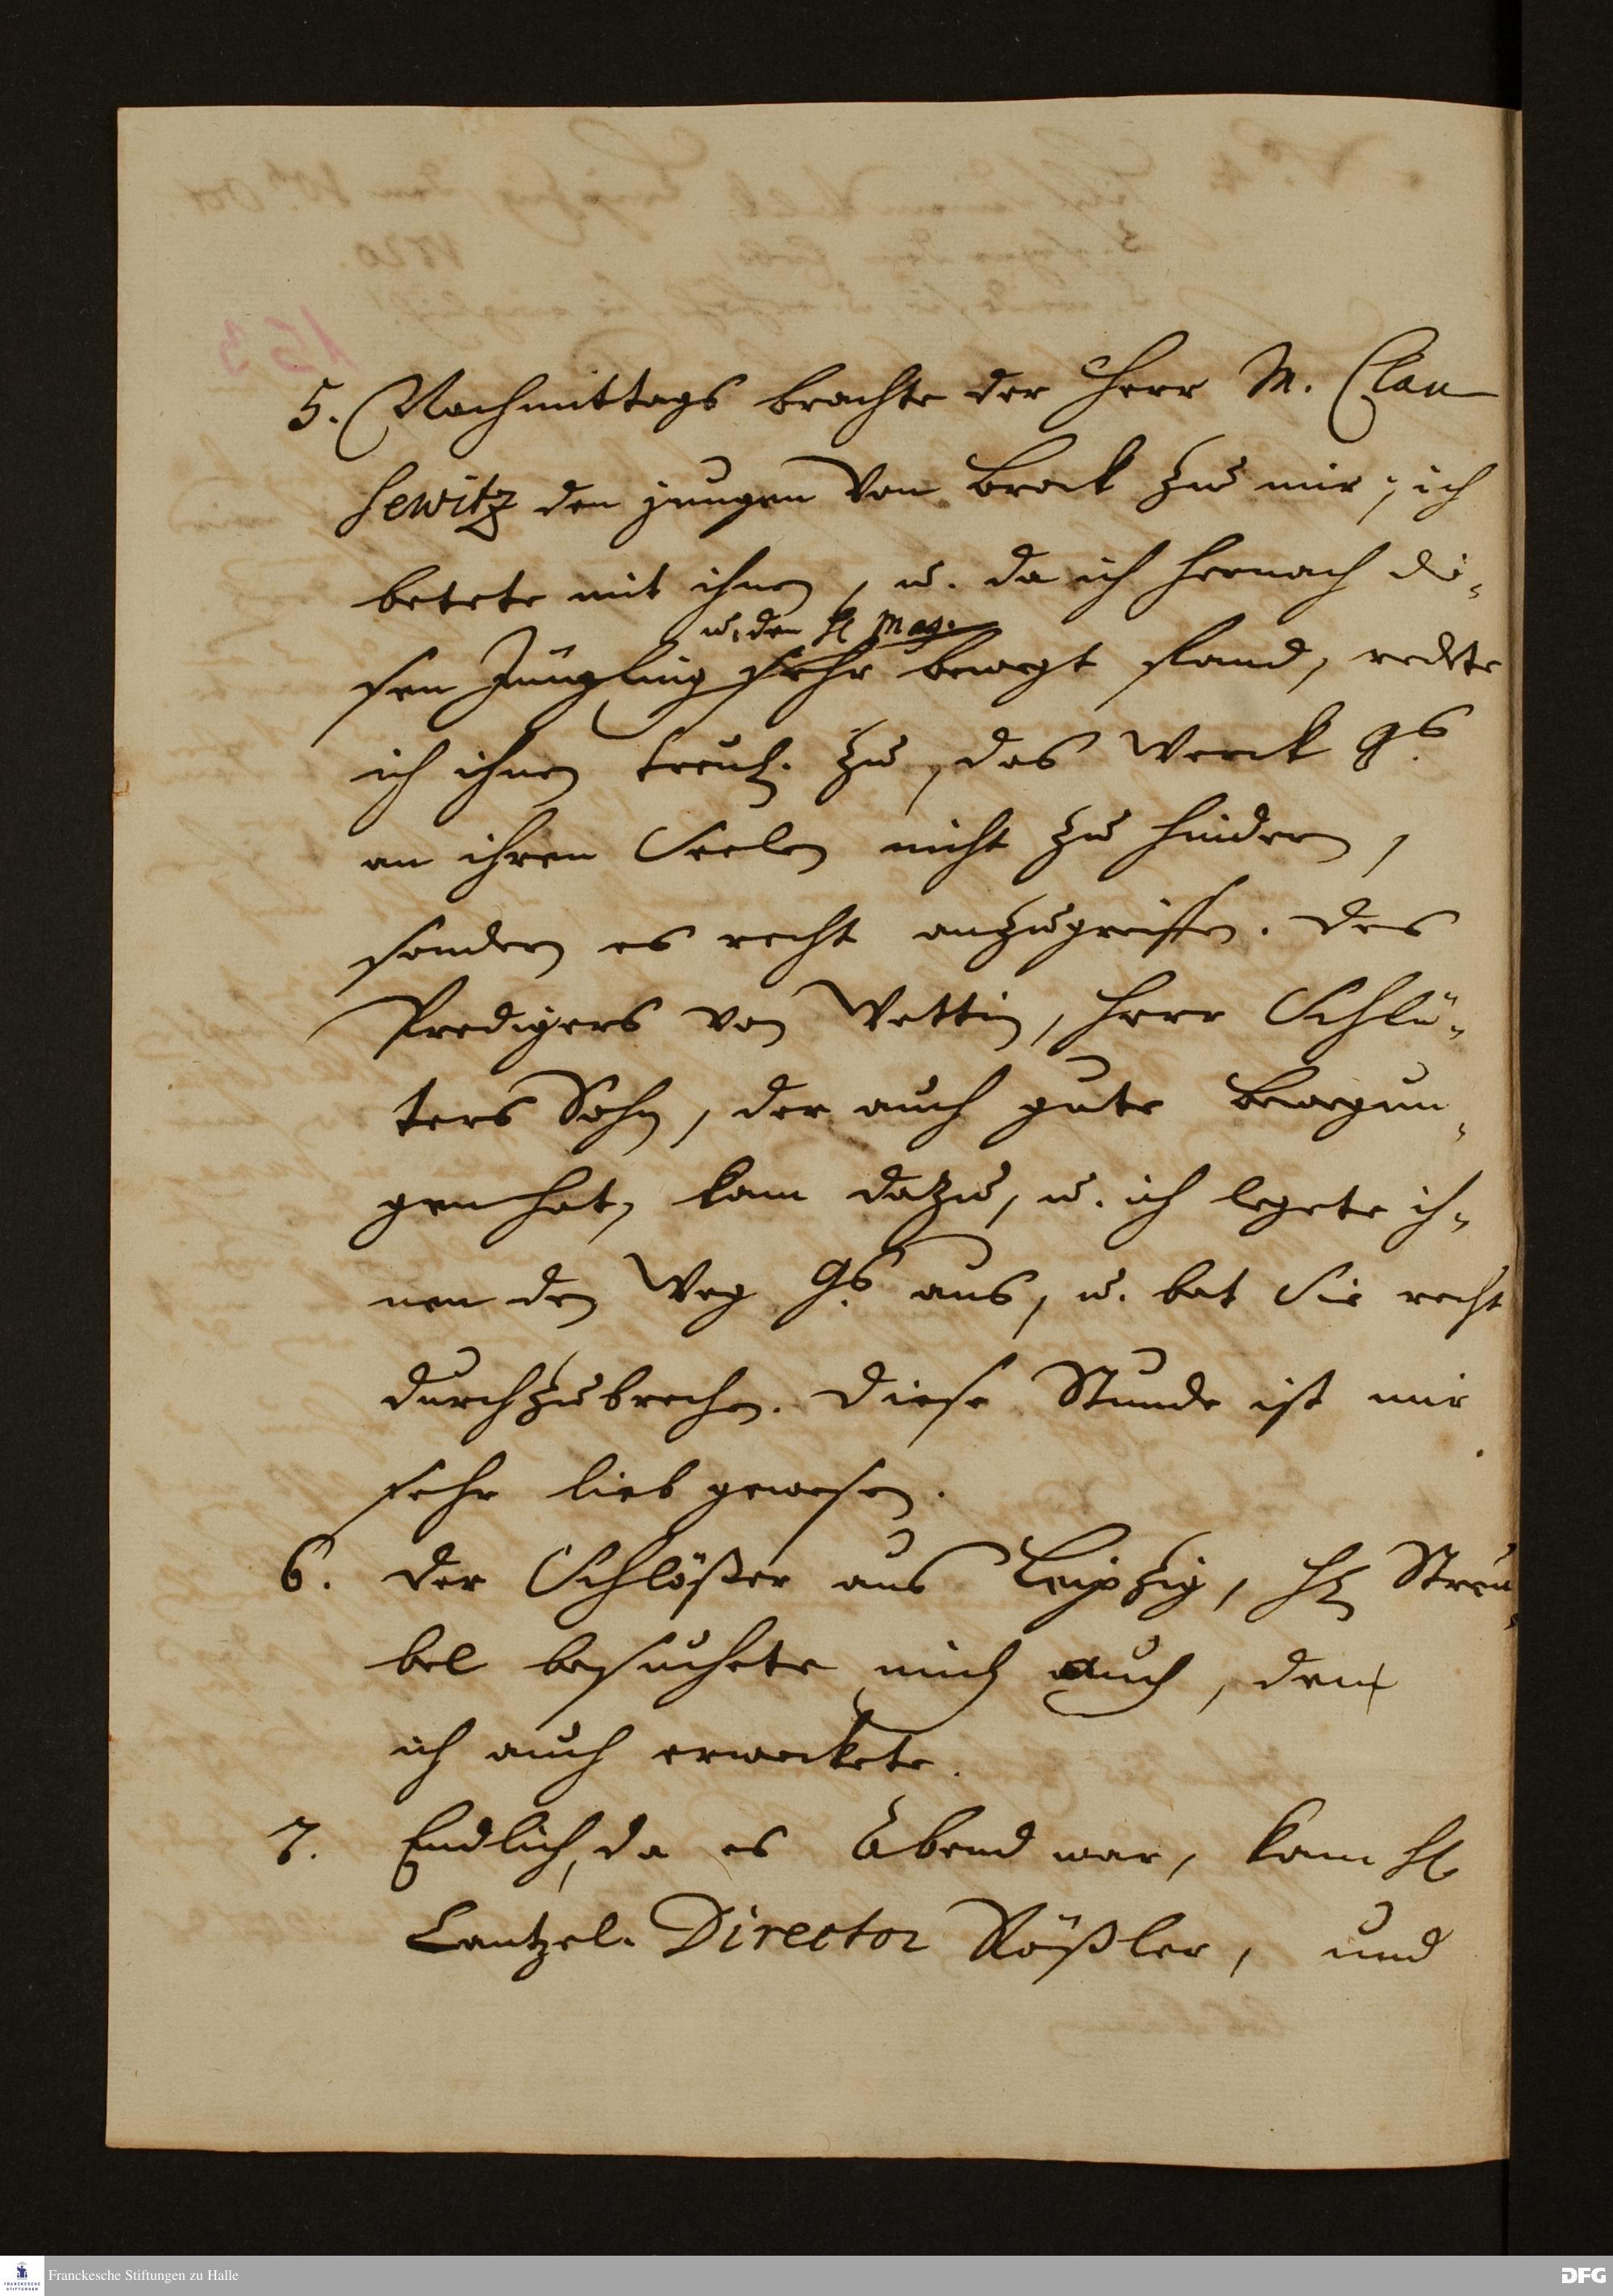 5. Nachmittags brachte der Herr M. Clau
sewitz den jungen von Brock zu mir; ich
betete mit ihnen, u. da ich hernach die-
u. den H. Mag.
sen Jüngling sehr bewegt fand, redete
ich ihnen treul. zu, das Werck Gs.
an ihren Seelen nicht zu hindern,
sondern es recht anzugreiffen. Des
Predigers von Wettin, Herr Schlü-
ters Sohn, der auch gute Bewegun-
gen hat, kam dazu, u. ich legete ih-
nen den Weg Gs. aus, u. bat Sie recht
durchzubrechen. Diese Stunde ist mir
sehr lieb gewesen.
6. Der Schlößer aus Leipzig, H. Streu-
bel besuchete mich auch, den
ich auch erweckete.
7. Endlich, da es Abend war, kam H.
Cantzel. Director Rößler, und
Franckesche Stiftungen zu Halle
DFG